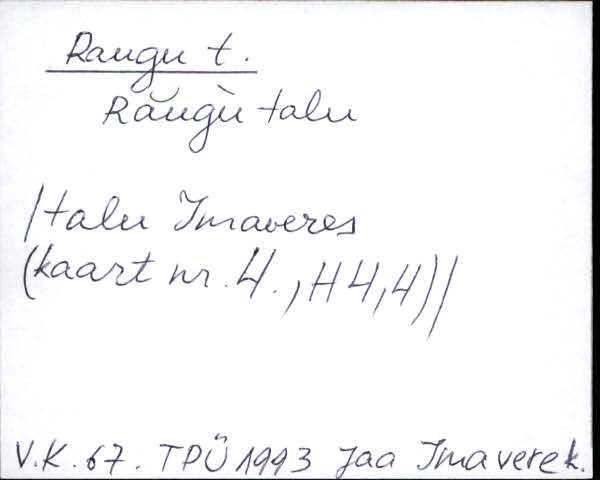 Raugu t.
Răugù talu
/talu Imaveres
(kaart nr. 4., H4,4)/
V.K. 67. TPÜ 1993 Jaa Imavere k.